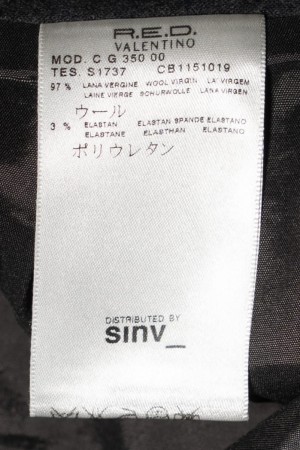 R.E.D.
VALENTINO
MOD. C G 350 00
TES. S1737 CB1151019
97 % LANA VERGINE WOOL VIRGIN LA VIRGEM
LAINE VIERGE SCHURWOLLE LANA VIRGEN
ウール
3 % ELASTAN ELASTAN SPANDE ELASTANO
ELASTANE ELASTHAN ELASTANO
ポリウレタン
DISTRIBUTED BY
sinv_